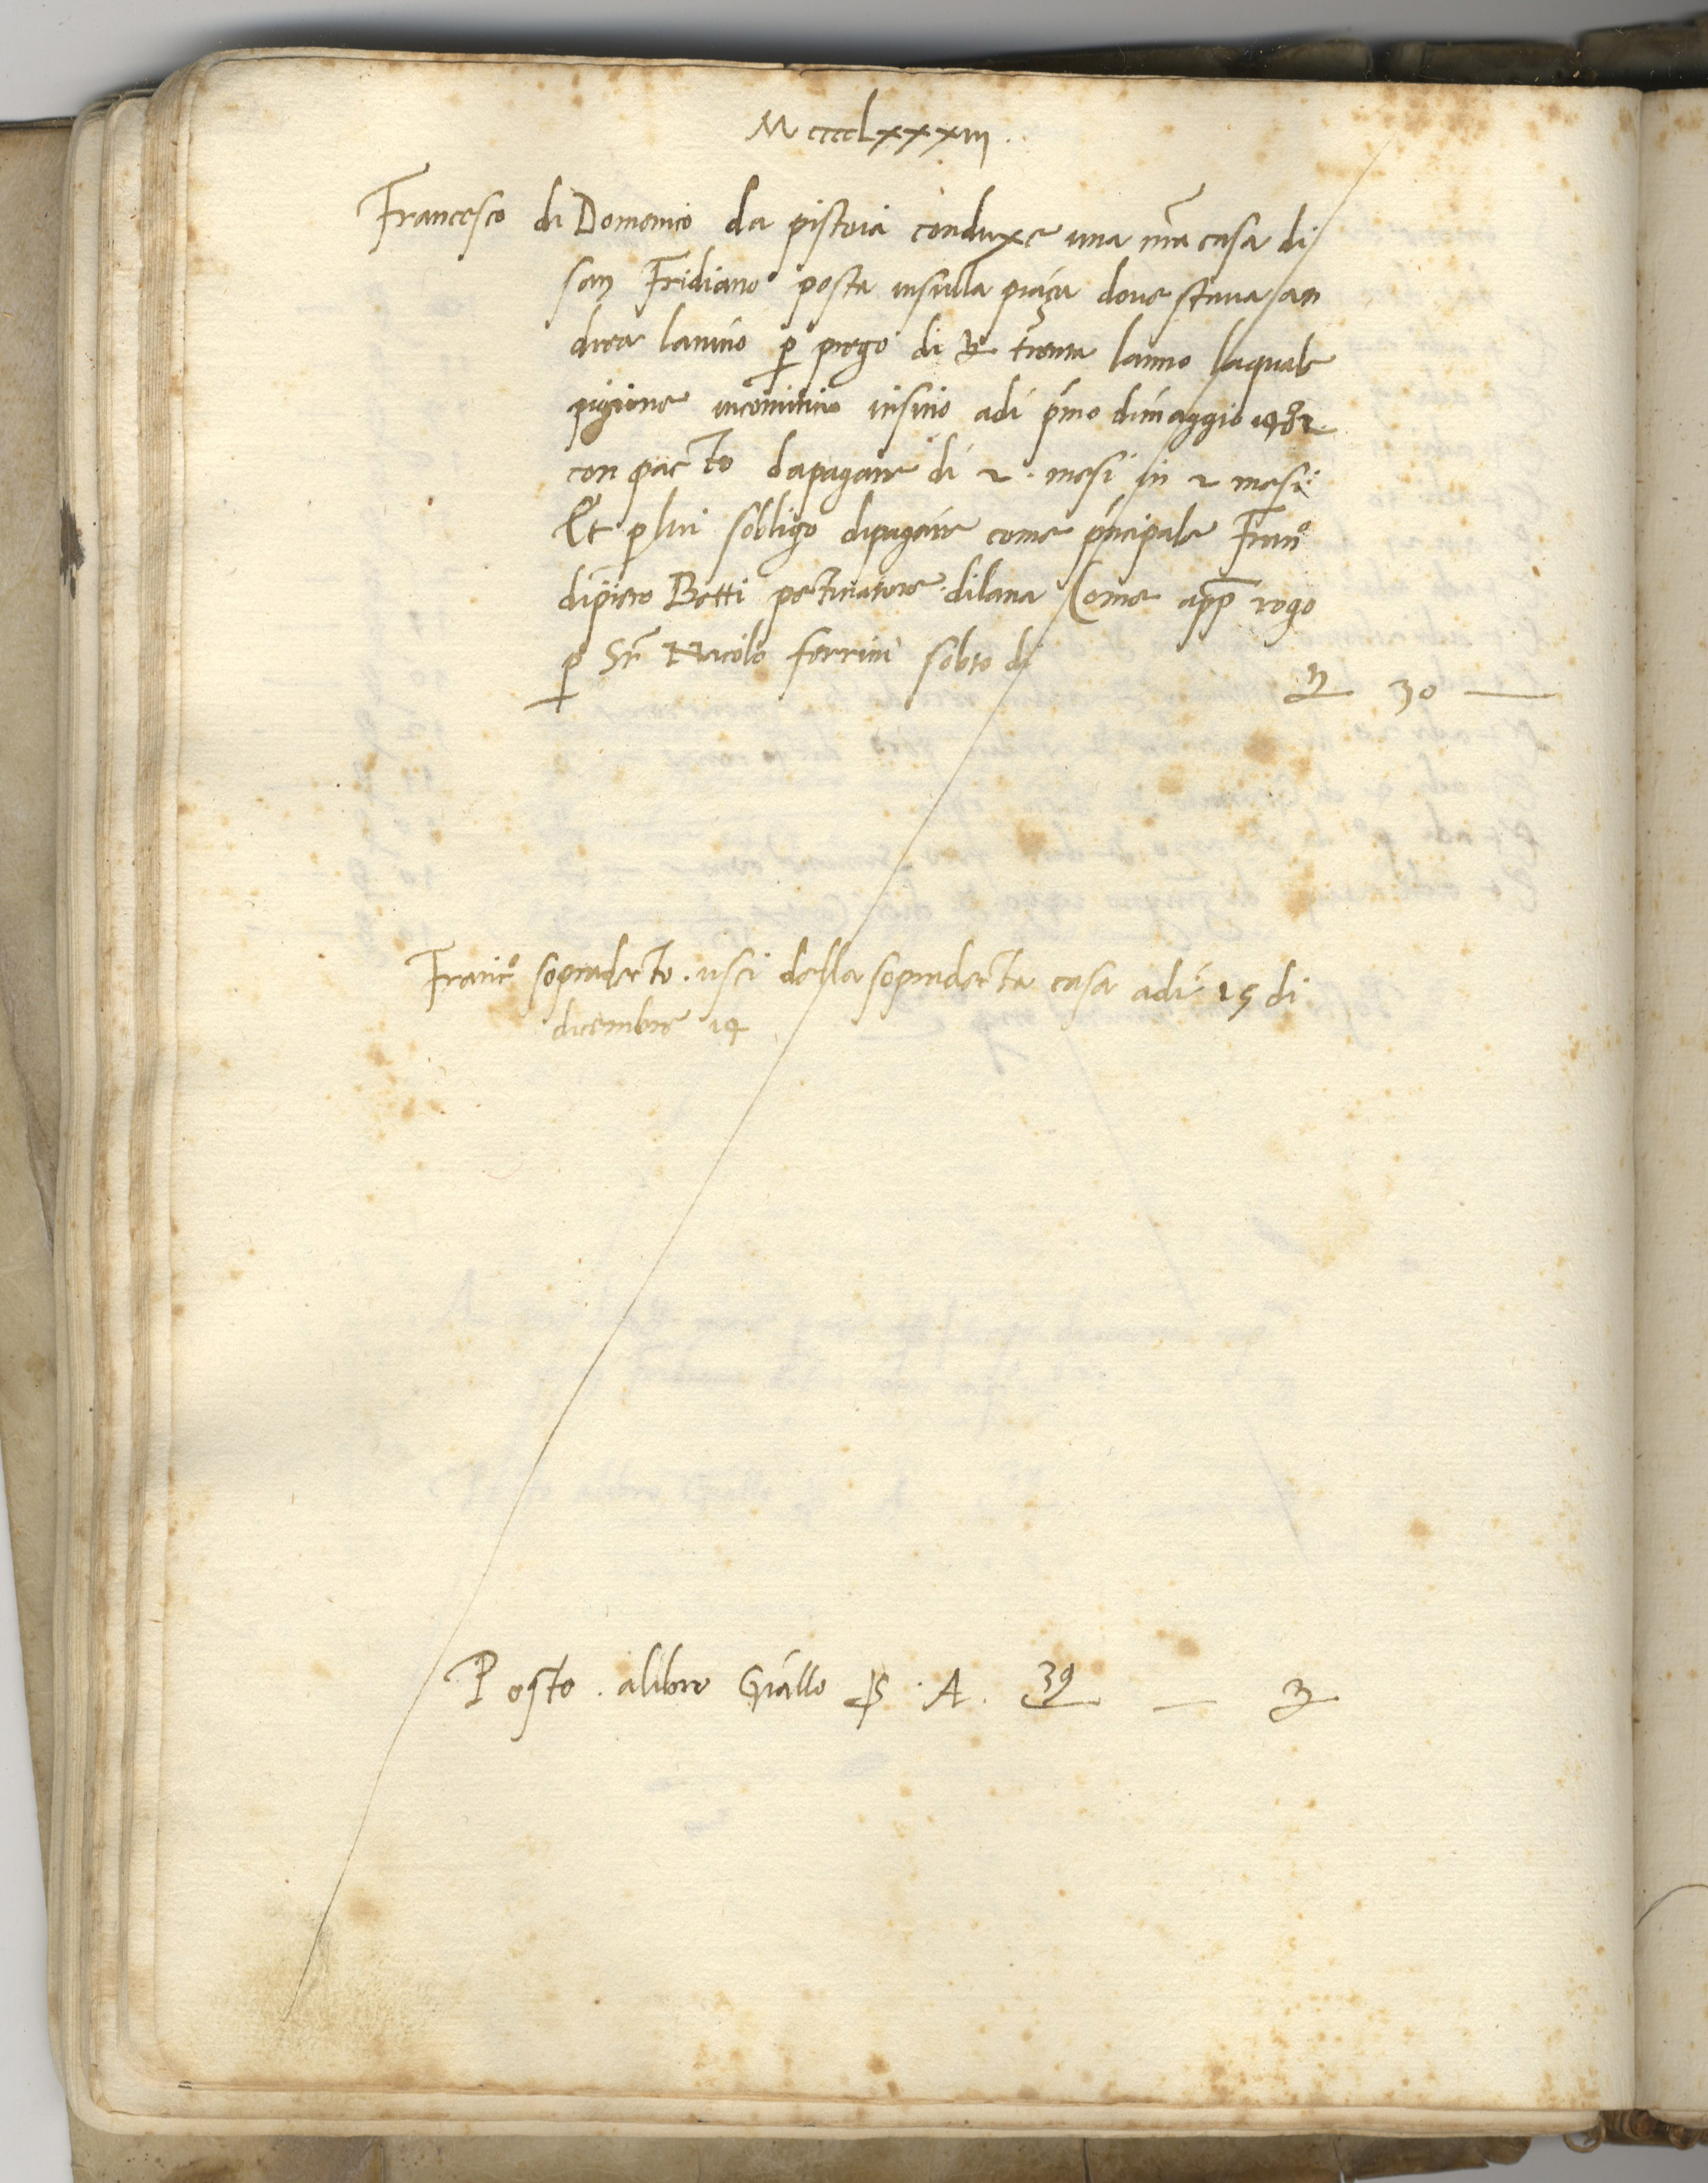 MccccLxxxiii
Francesco di Domenico da pistoia conduxe una nrã casa di
san Fridiano posta insulla piaça doue staua an
drea lanino p pregio di £ trenta lanno laquale
pigione incomincio insino adi pṛmo dimaggio 1482
con pacto dapagare di 2. mesi in 2 mesi:
Et p lui sobligo dipagare come pñcipale Franº
dipiero Betti pectinatore dilana Come app rogo
p Sr Nicolo ferrini sotto di
£ 30 —
Francº sopradecto. usci della sopradecta casa adi 15 di
dicembre 14
Posto. alibro Giallo S. A. 39 — £